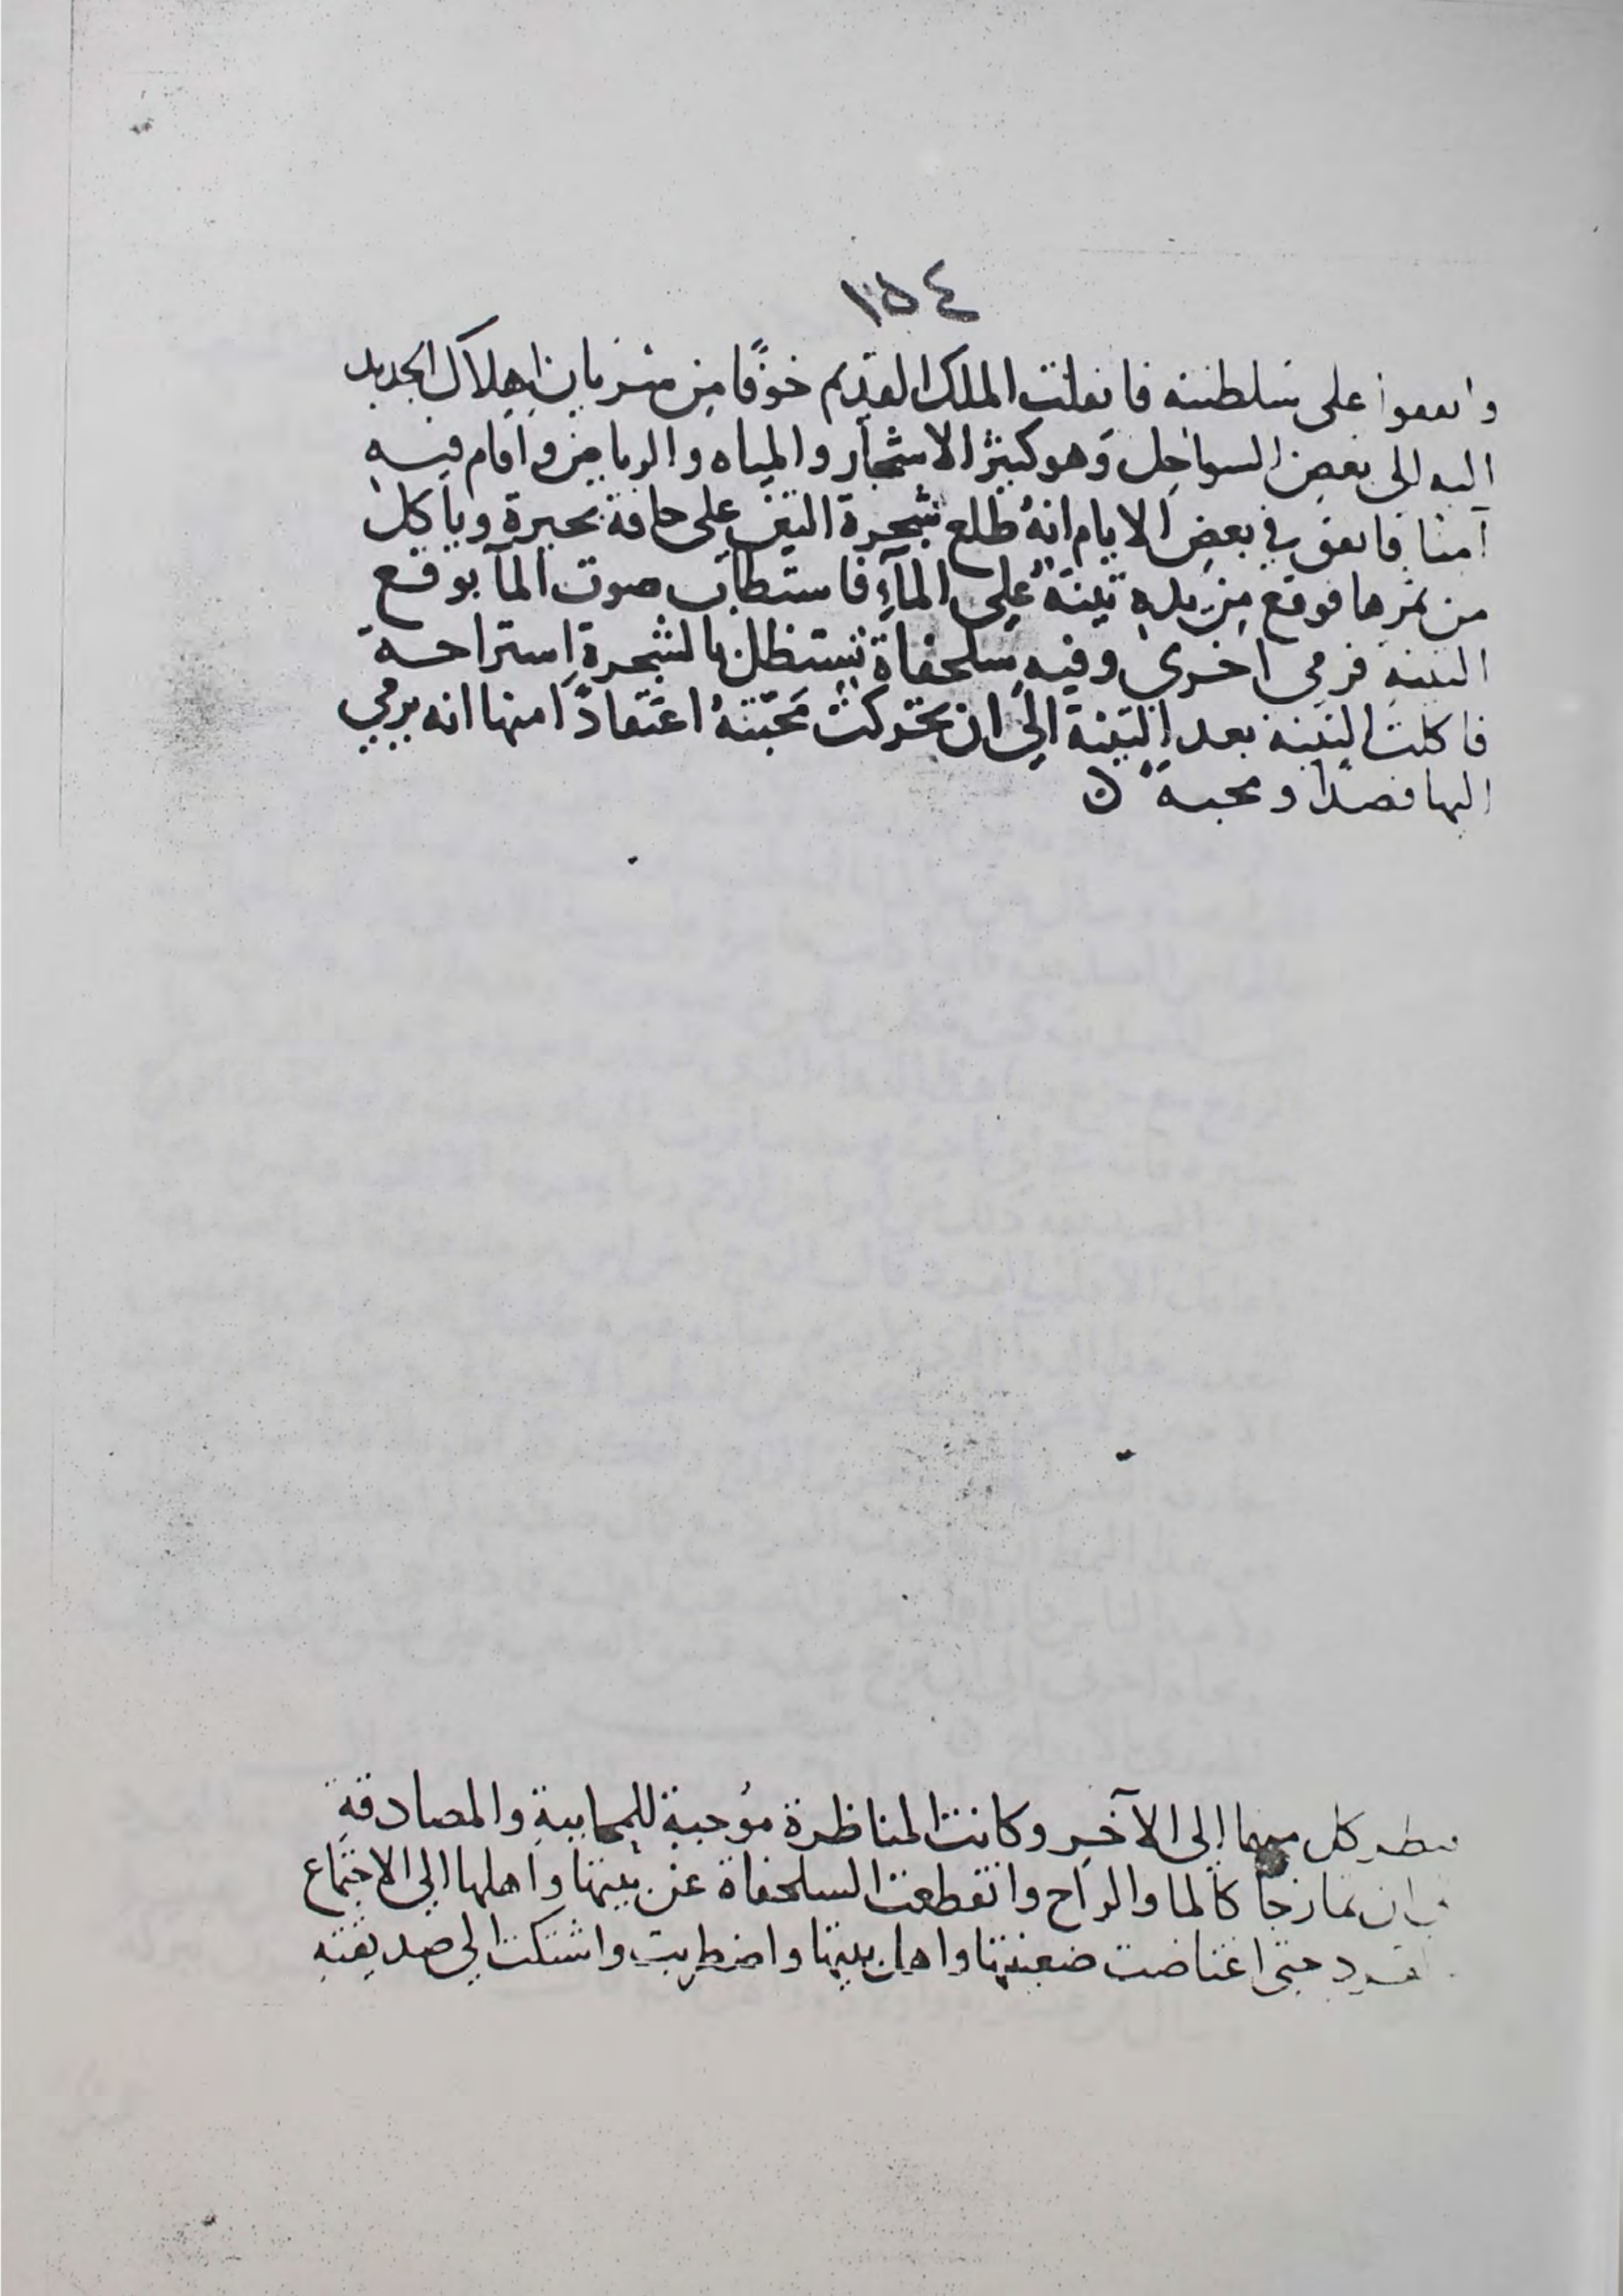 ١٥٤
واتفقوا على سلطنته فانفلت الملك القديم خوفًا من سريان اهلاك الجديد
اليه الى بعض السواحل وهو كثير الاشجار والمياه والرياحين واقام فيه
آمنا فاتفق في بعض الايام انه طلع شجرة التين على حافة بحيرة وياكل
من ثمرها فوقع من يده تينة على المآء فاستطاب صوت المآ بوقع
التينة فرمى اخرى وفيه سلحفاة تستظل بالشجرة استراحة
فاكلت التينة بعد التينة الى ان تحركت محبته اعتقادًا منها انه يرمي
اليها قصدًا ومحبة ن
فنظر كل منهما الى الآخر وكانت المناظرة موجبة للمحاببة والمصادقة
ان تمازجا كالما والراح وانقطعت السلحفاة عن بيتها واهلها الى الاجتماع
حتى اغتاضت ضعينتها واهل بيتها واضطربت واشتكت الى صديقته